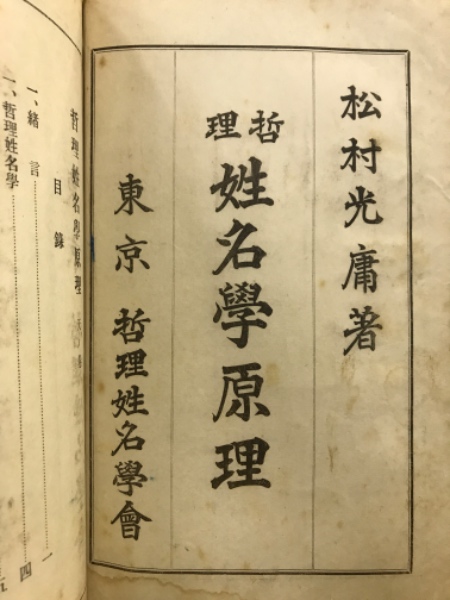 松村光庸著
哲理
姓名學原理
東京 哲理姓名學會
哲理姓名學原理
目錄
一、緒言………一
一、哲理姓名學………四